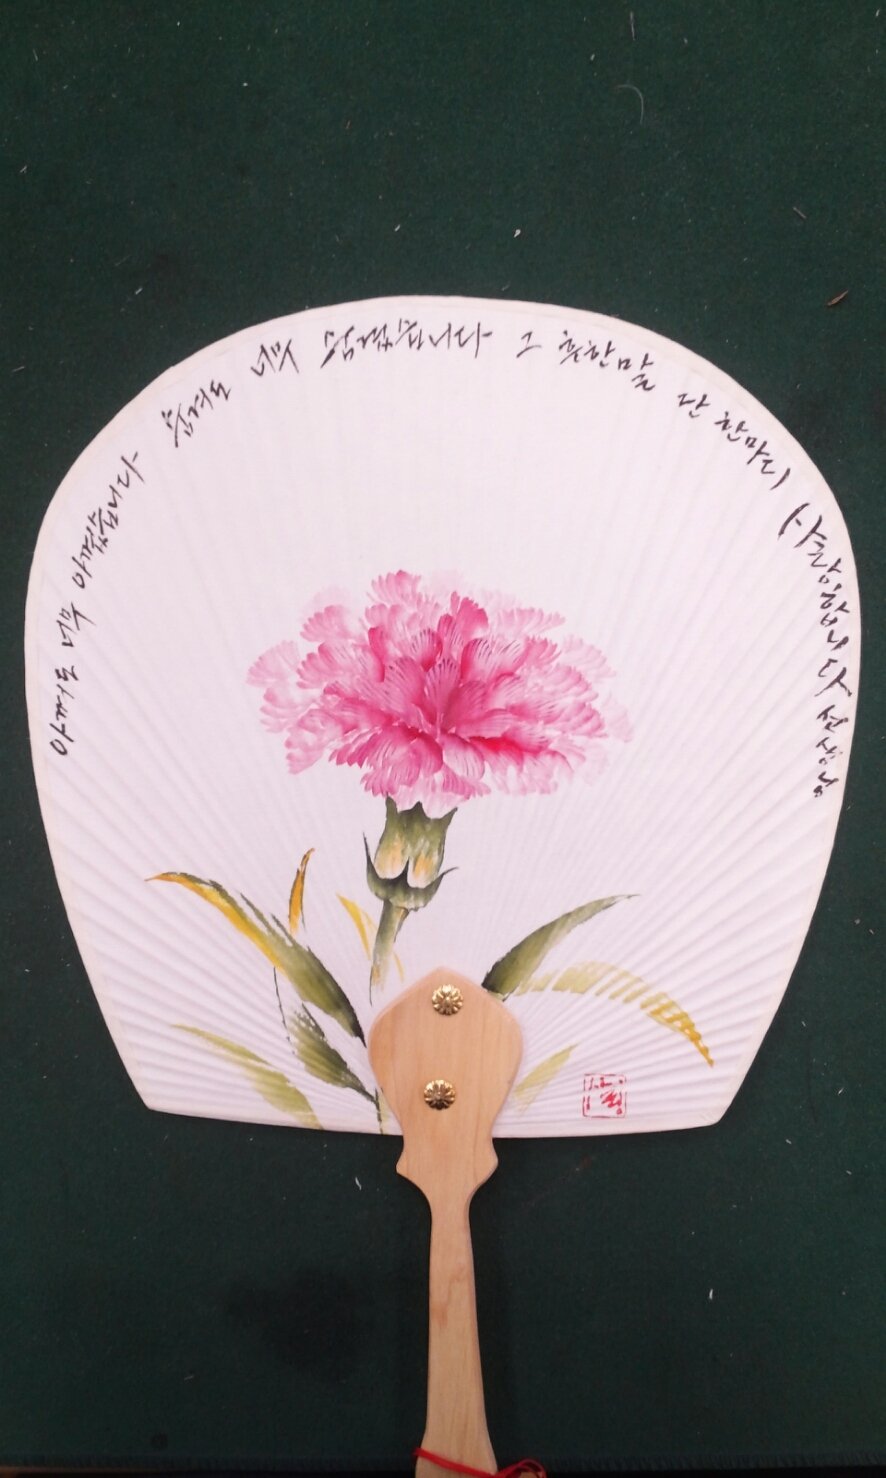 아껴도 너무 아꼈습니다 숨겨도 너무 숨겼습니다 그 흔한말 단 한마디 사랑합니다 선생님